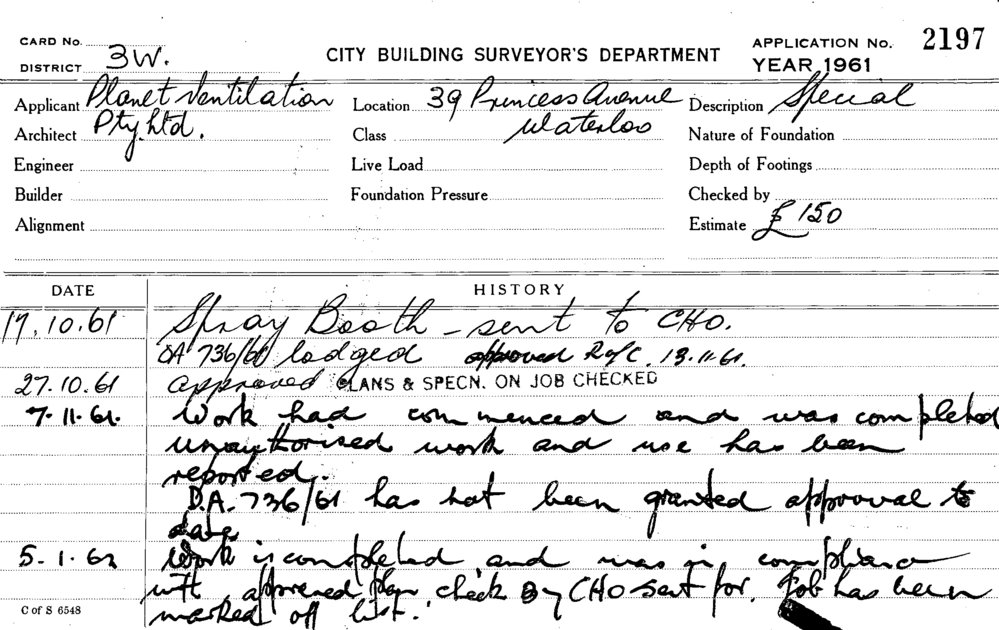 CARD No.
DISTRICT 3W.
CITY BUILDING SURVEYOR'S DEPARTMENT
APPLICATION No. 2197
YEAR 1961
Applicant Planet Ventilation Location 39 Princess Avenue Description Special
Architect Pty Ltd. Class Waterloo Nature of Foundation
Engineer Live Load Depth of Footings
Builder Foundation Pressure Checked by
Alignment Estimate £150
DATE HISTORY
17.10.61 Spray Booth - sent to CHO.
DA 736/61 lodged approved R of C. 13.11.61.
27.10.61 approved PLANS & SPECN. ON JOB CHECKED
7.11.61. Work had commenced and was completed
unauthorised work and use has been
reported.
D.A. 736/61 has not been granted approval to
date.
5.1.62 Work is completed and was in compliance
with approved plan. check By CHO sent for. Job has been
marked off list.
C of S 6548